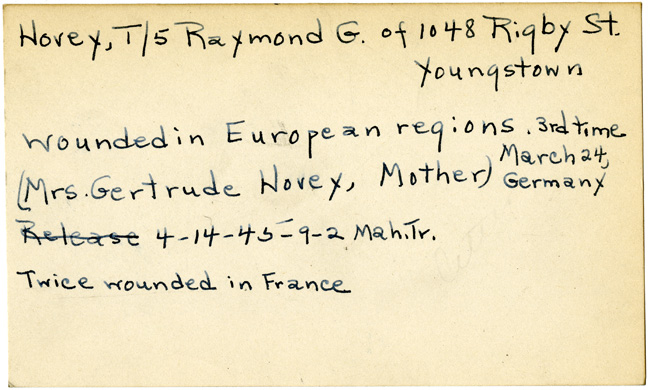 Hovey, T/5 Raymond G. of 1048 Rigby St.
Youngstown
wounded in European regions. 3rd time
March 24,
(Mrs. Gertrude Hovey, Mother) Germany
Release 4-14-45-9-2 Mah. Tr.
Twice wounded in France